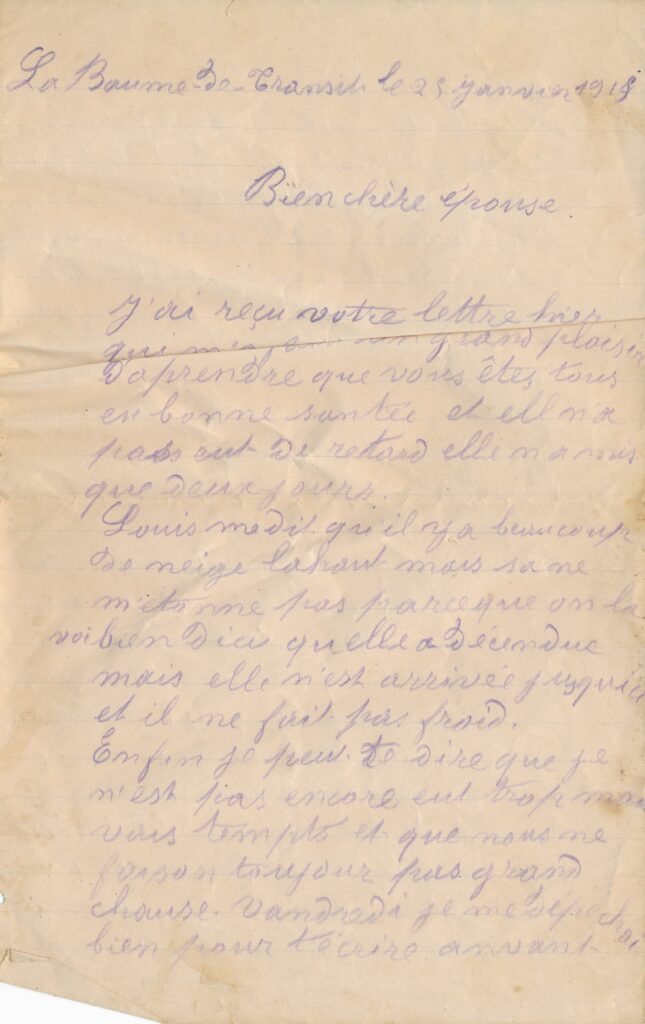 La Baume-de-Transit le 25 Janvier 1915
Bien chère épouse.
J'ai reçu votre lettre hier
qui m'a fait un grand plaisir
d'aprendre que vous êtes tous
en bonne santée et ell n'a
pas eut de retard elle n'a mis
que deux jours.
Louis me dit qu'il y a beaucoup
de neige lahaut mais sa ne
m'étonne pas parceque on la
voi bien dici quelle a décendue
mais elle n'est arrivée jusquici
et il ne fait pas froid.
Enfin je peut te dire que je
n'est pas encore eut trop mau
vais tempts et que nous ne
faison toujour pas grand
chause. Vandredi je me dépechai
bien pour t'écrire anvant